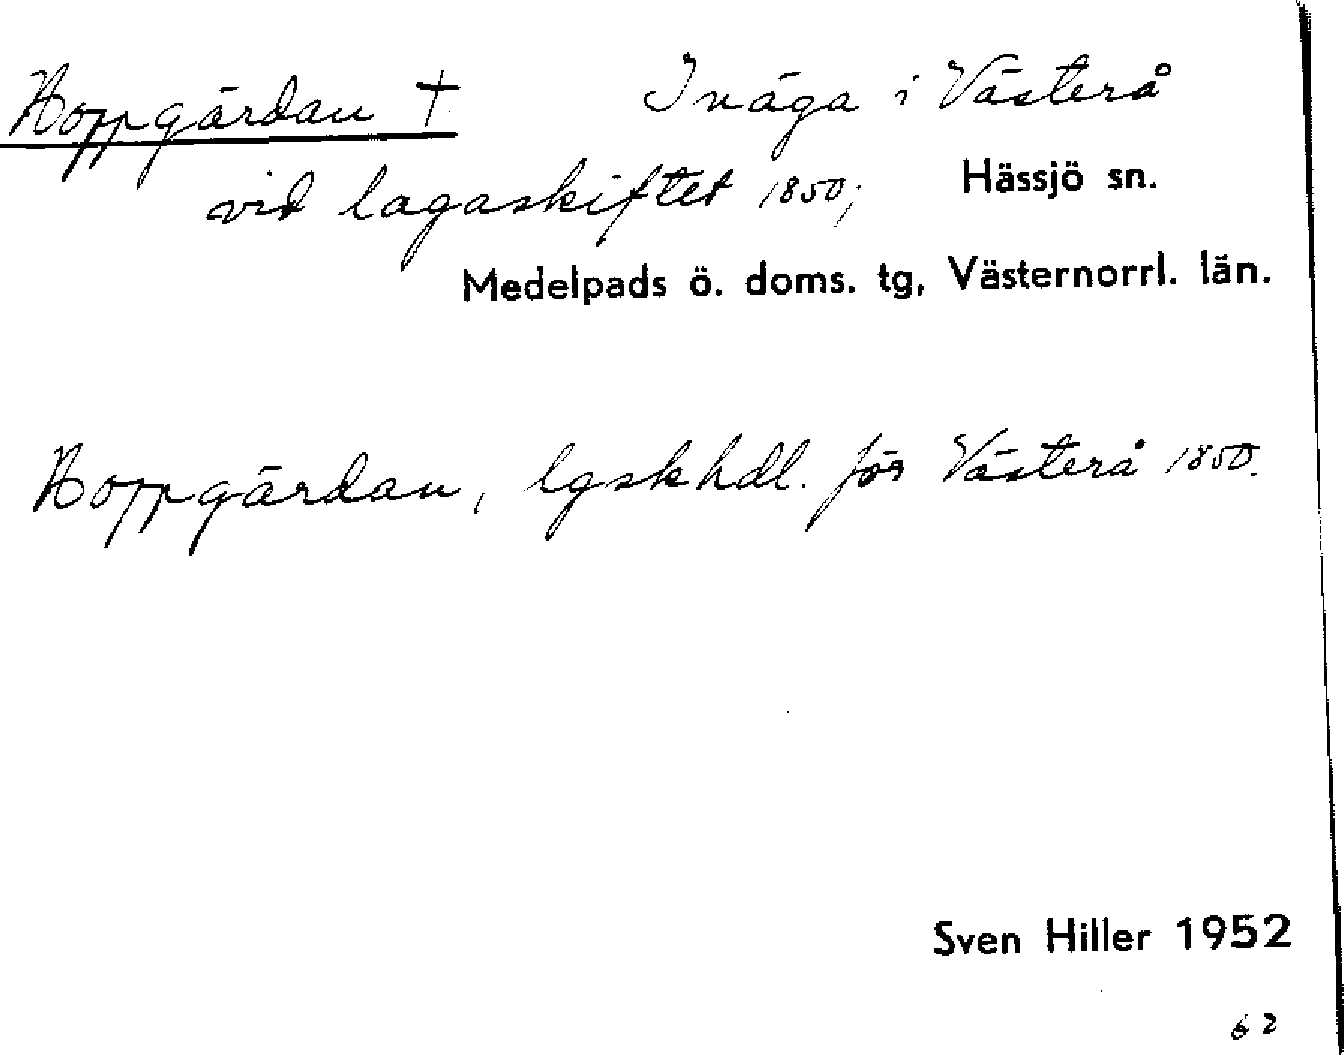 Hoppgärdan † Inäga i Västerå
vid lagaskiftet 1850; Hässjö sn.
Medelpads ö. doms. tg, Västernorrl. län.
Hoppgärdan, lgskhdl. för Västerå 1850.
Sven Hiller 1952
62